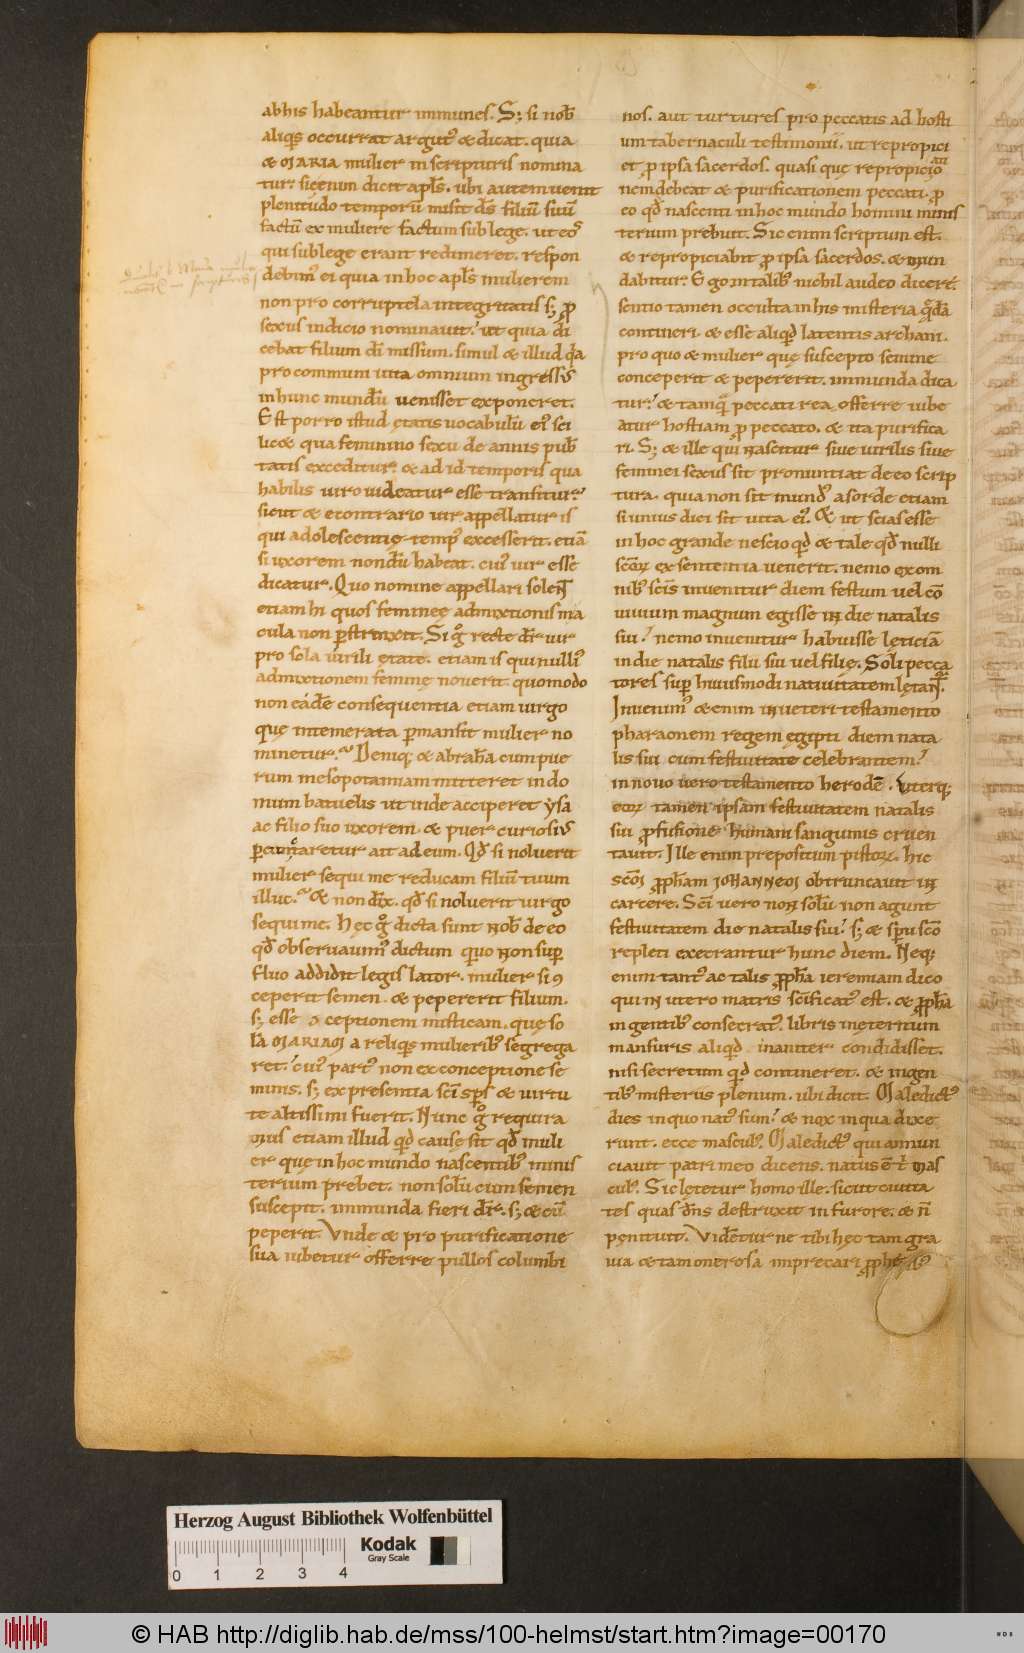 abhis habeantur immunes. S; si nob̄
aliq̄s occurrat argut᾽ & dicat. quia
& MARIA mulier in scripturis nomina
tur. sic enim dicit apl̄s. ubi autem uenit
plenitudo temporū misit dſ̄ filiū suū
factū ex muliere factum sub lege. ut eos
qui sub lege erant redimeret. respon
debim᾽ ei quia in hoc apl̄s mulierem
non pro corruptela integritatis s; ꝓ
sexus indicio nominauit. ut quia di
cebat filium dī missum. simul & illud qđa
pro communi uita omnium ingressus
in hunc mundū uenisset exponeret.
Est porro istud ętatis uocabulū ei᾽ sci
lic& qua feminino sexu de annis pub̄
tatis exceditur. & ad id temporis qua
habilis uiro uideatur esse transitur.
sicut & econtrario uir appellatur is
qui adolescentię temp᾽ excesserit. etiā
si uxorem nondū habeat. cui᾽ uir esse
dicatur. Quo nomine appellari solen̄t
etiam hi quos feminęę admixtionis ma
cula non p̄strinxit. Si g̊ recte dr̄ uir
pro sola uirili ętate. etiam is qui nulli᾽
admixtionem feminę nouerit. quomodo
non cadē consequentia etiam uirgo
quę intemerata pmansit mulier no
minetur. Deniq; & abrahā cum pue
rum mesopotamiam mitteret in do
mum batuelis ut inde acciperet ysa
ac filio suo uxorem & puer curiosius
pcunctaretur ait ad eum. Qđ si noluerit
mulier sequi me reducam filiū tuum
illuc. & non dix̄. qđ si noluerit uirgo
sequi me. Hęc g̊ dicta sunt nob̄ de eo
qđ obseruauim᾽ dictum quo non sup
fluo addidit legis lator. mulier si ꝯ
ceperit semen. & pepererit filium.
s; esse ꝯceptionem misticam. quę so
lā MARIAM a reliq̄s mulierib᾽ segrega
ret. cui᾽ part᾽ non ex conceptione se
minis. s; ex presentia sc̄i sp̄s & uirtu
te altissimi fuerit. Nunc g̊ requira
mus etiam illud qđ causę sit qđ muli
er quę in hoc mundo nascentib᾽ minis
terium prebet. non solū cum semen
suscepit. immunda fieri dr̄. s; & cū
peperit. Vnde & pro purificatione
sua iubetur offerre pullos columbi
nos. aut turtures pro peccatis ad hosti
um tabernaculi testimonii. ut repropici
et ꝓ ipsa sacerdos. quasi quę repropicio
nem debeat & purificationem peccati. ꝓ
eo qđ nascenti in hoc mundo homini minis
terium prebuit. Sic enim scriptum est.
& repropiciabit ꝓ ipsa sacerdos. & mun
dabitur. Ego in talib᾽ nichil audeo dicere.
sentio tamen occulta in his misteria quędā
contineri. & esse aliqđ latentis archani.
pro quo & mulier quę suscepto semine
conceperit & pepererit. immunda dica
tur. & tamquā peccati rea offerre iube
atur hostiam ꝓ peccato. & ita purifica
ri. S; & ille qui nascitur siue uirilis siue
feminei sexus sit pronuntiat de eo scrip
tura. quia non sit mund᾽ a sorde etiam
si unius diei sit uita ei᾽. & ut scias esse
in hoc grande nescio qđ & tale qđ nulli
sc̄orꝝ ex sententia uenerit. nemo ex om
nib᾽ sc̄is inuenitur diem festum uel cō
uiuium magnum egisse in die natalis
sui. nemo inuenitur habuisse lęticiā
in die natalis filii sui uel filię. Soli pecca
tores sup huiusmodi natiuitatem lętant̄.
Inuenim᾽ & enim in ueteri testamento
pharaonem regem egipti diem nata
lis sui cum festiuitate celebrantem.
in nouo uero testamento herodē. Vterq;
eorꝝ tamen ipsam festiuitatem natalis
sui ꝓfusione humani sanguinis cruen
tauit. Ille enim prepositum pistorꝝ. hic
sc̄m ꝓph̄am IOHANNEM obtruncauit in
carcere. Sc̄i uero non solū non agunt
festiuitatem die natalis sui. s; & sp̄u sc̄o
repleti exetrantur hunc diem. Neq;
enim tant᾽ ac talis ꝓph̄a ieremiam dico
qui in utero matris sc̄ificat᾽ est. & ꝓph̄a
in gentib᾽ consecrat᾽. libris inęternum
mansuris aliqđ inaniter condidisset.
nisi secretum qđ contineret. & ingen
tib᾽ misteriis plenum. ubi dicit. Maledict᾽
dies in quo nat᾽ sum. & nox in qua dixe
runt. ecce mascul᾽. Maledict᾽ qui annun
ciauit patri meo dicens. natus ē t̄ mas
cul᾽. Sic lętetur homo ille. sicut ciuita
tes quas dn̄s destruxit in furore. & n̄
pęnituit. Videtur ne tibi hęc tam gra
uia & tam onerosa imprecari ꝓph̄a
Herzog August Bibliothek Wolfenbüttel
Kodak
Gray Scale
0 1 2 3 4
© HAB http://diglib.hab.de/mss/100-helmst/start.htm?image=00170